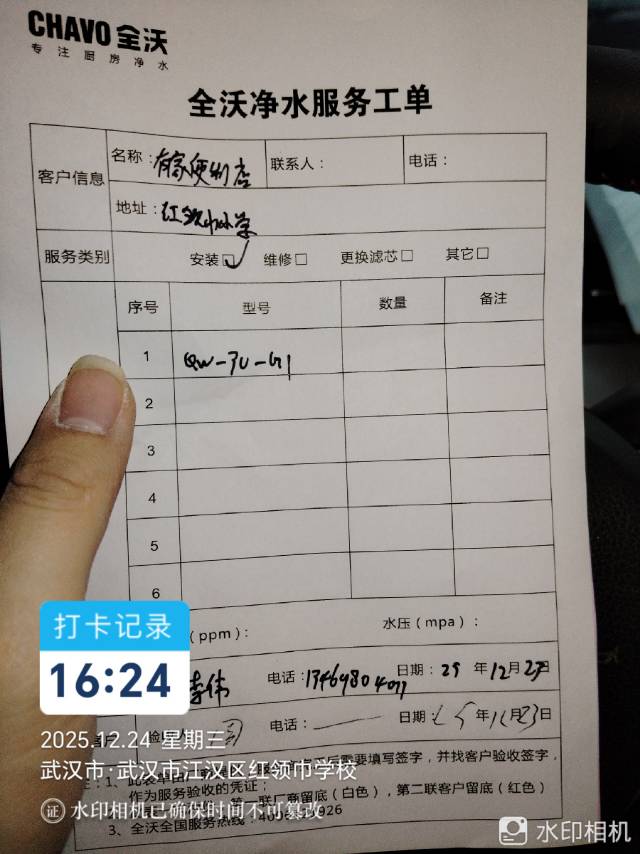 CHAVO 全沃
专注厨房净水
全沃净水服务工单
客户信息 名称：有家便利店 联系人： 电话：
地址：红领巾小学
服务类别 安装☑ 维修☐ 更换滤芯☐ 其它☐
序号 型号 数量 备注
1 QW-3U-G1
2
3
4
5
6
(ppm)： 水压（mpa）：
李伟 电话： 日期：25年12月23日
电话： 日期：25年12月23日
打卡记录
16:24
2025.12.24 星期三
武汉市·武汉市江汉区红领巾学校
证 水印相机已确保时间不可篡改
需要填写签字，并找客户验收签字，
作为服务验收的凭证；
联厂商留底（白色），第二联客户留底（红色）
3、全沃全国服务热线：
水印相机